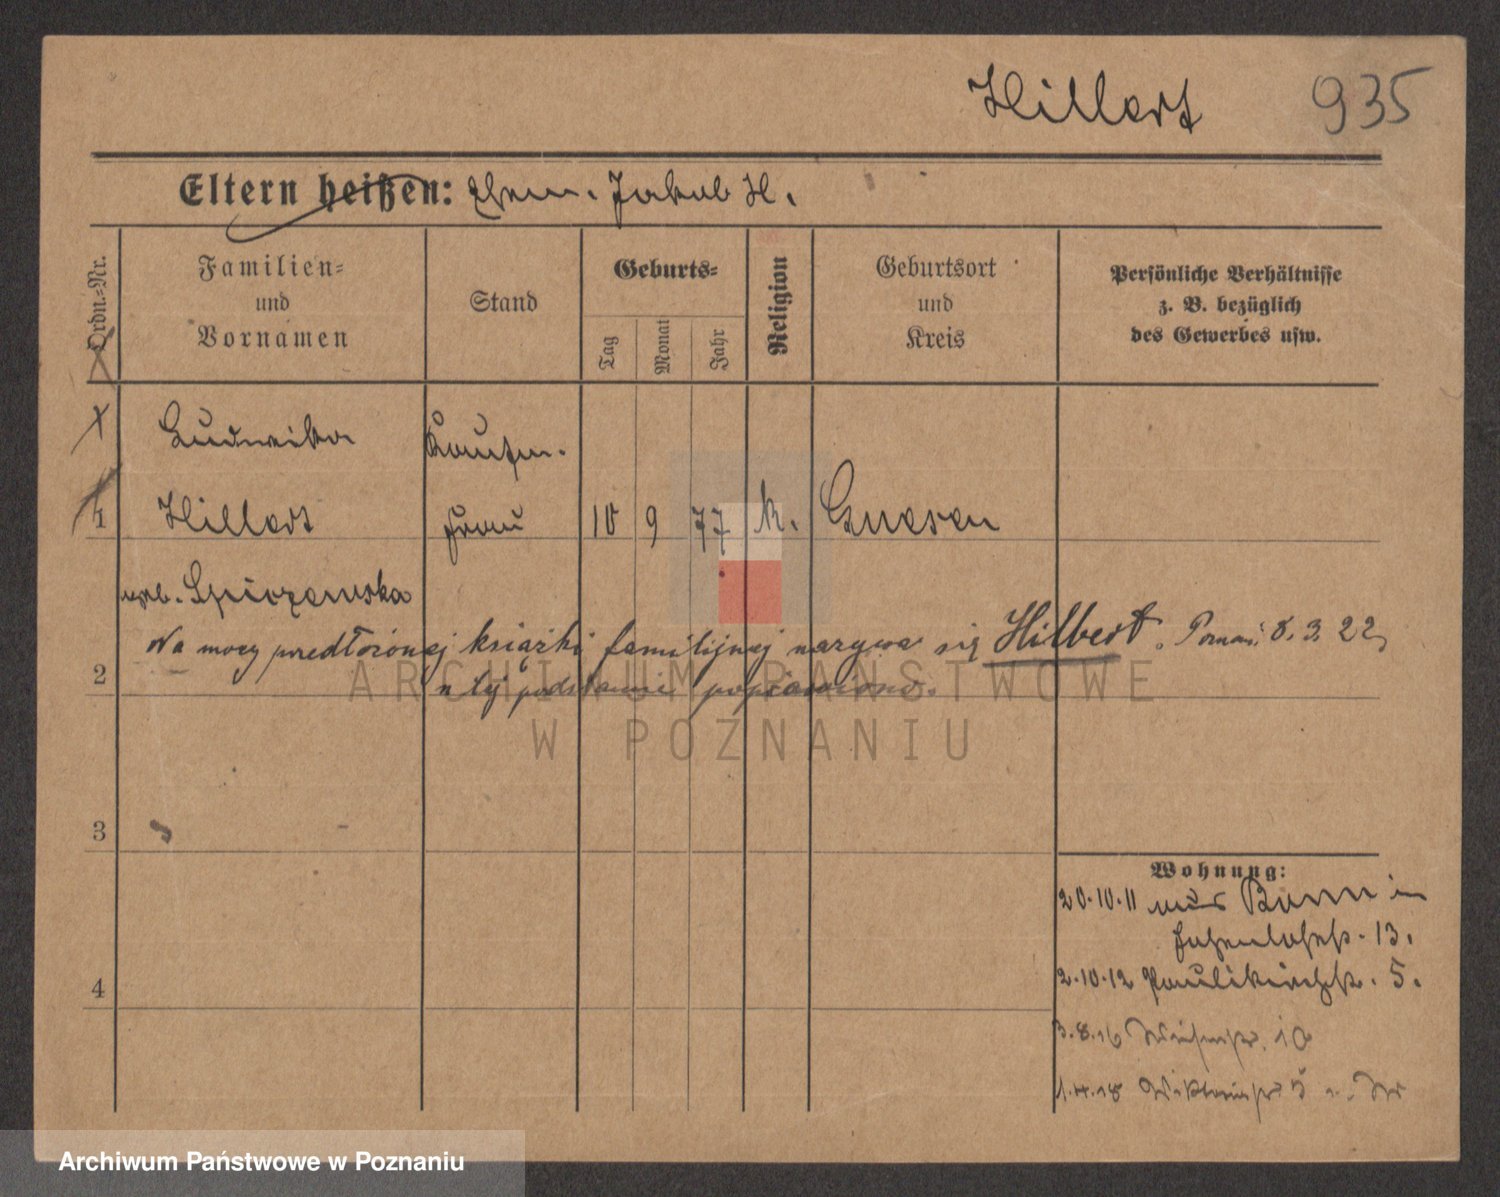 Hillert 935
Eltern heißen: Ehem. Jakob H.
Ordn.-Nr.
Familien-
und
Vornamen
Stand
Geburts-
Tag
Monat
Jahr
Religion
Geburtsort
und
Kreis
Persönliche Verhältnisse
z. B. bezüglich
des Gewerbes usw.
Ludwika Kaufm.
1 Hillert Frau 10 9 77 k. Gnesen
Na mocy przedłożonej książki familijnej nazywa się Hilbert. Poznań 8. 3. 22
2 tej podstawie poprawiono.
3
4
Wohnung:
20.10.11 aus Bonn in
13.
2.10.12 Paulikirchstr. 5.
3.8.16 10
1.4.18 Viktoriastr. 5
ARCHIWUM PAŃSTWOWE
W POZNANIU
Archiwum Państwowe w Poznaniu